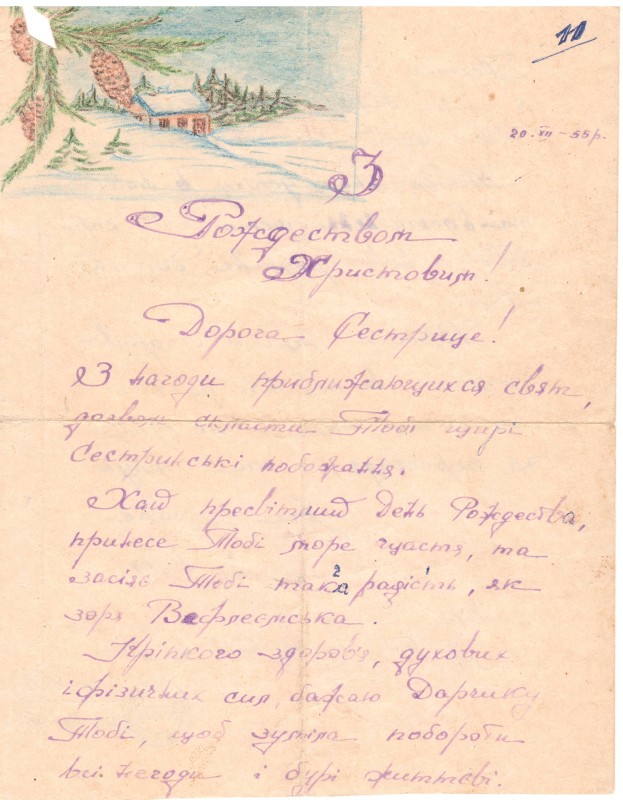 10
20. XII – 55 р.
З
Рождеством
Христовим!
Дорога Сестрице!
З нагоди приближающихся свят,
дозволь скласти Тобі щирі
Сестринські побожання.
Хай пресвітлий День Рождества,
принесе Тобі море щастя, та
засіяє Тобі така радість, як
зоря Вифлеємська.
Кріпкого здоров'я, духових
і фізичних сил, бажаю Дарчику
Тобі, щоб зуміла побороти
всі негоди і бурі життєві.